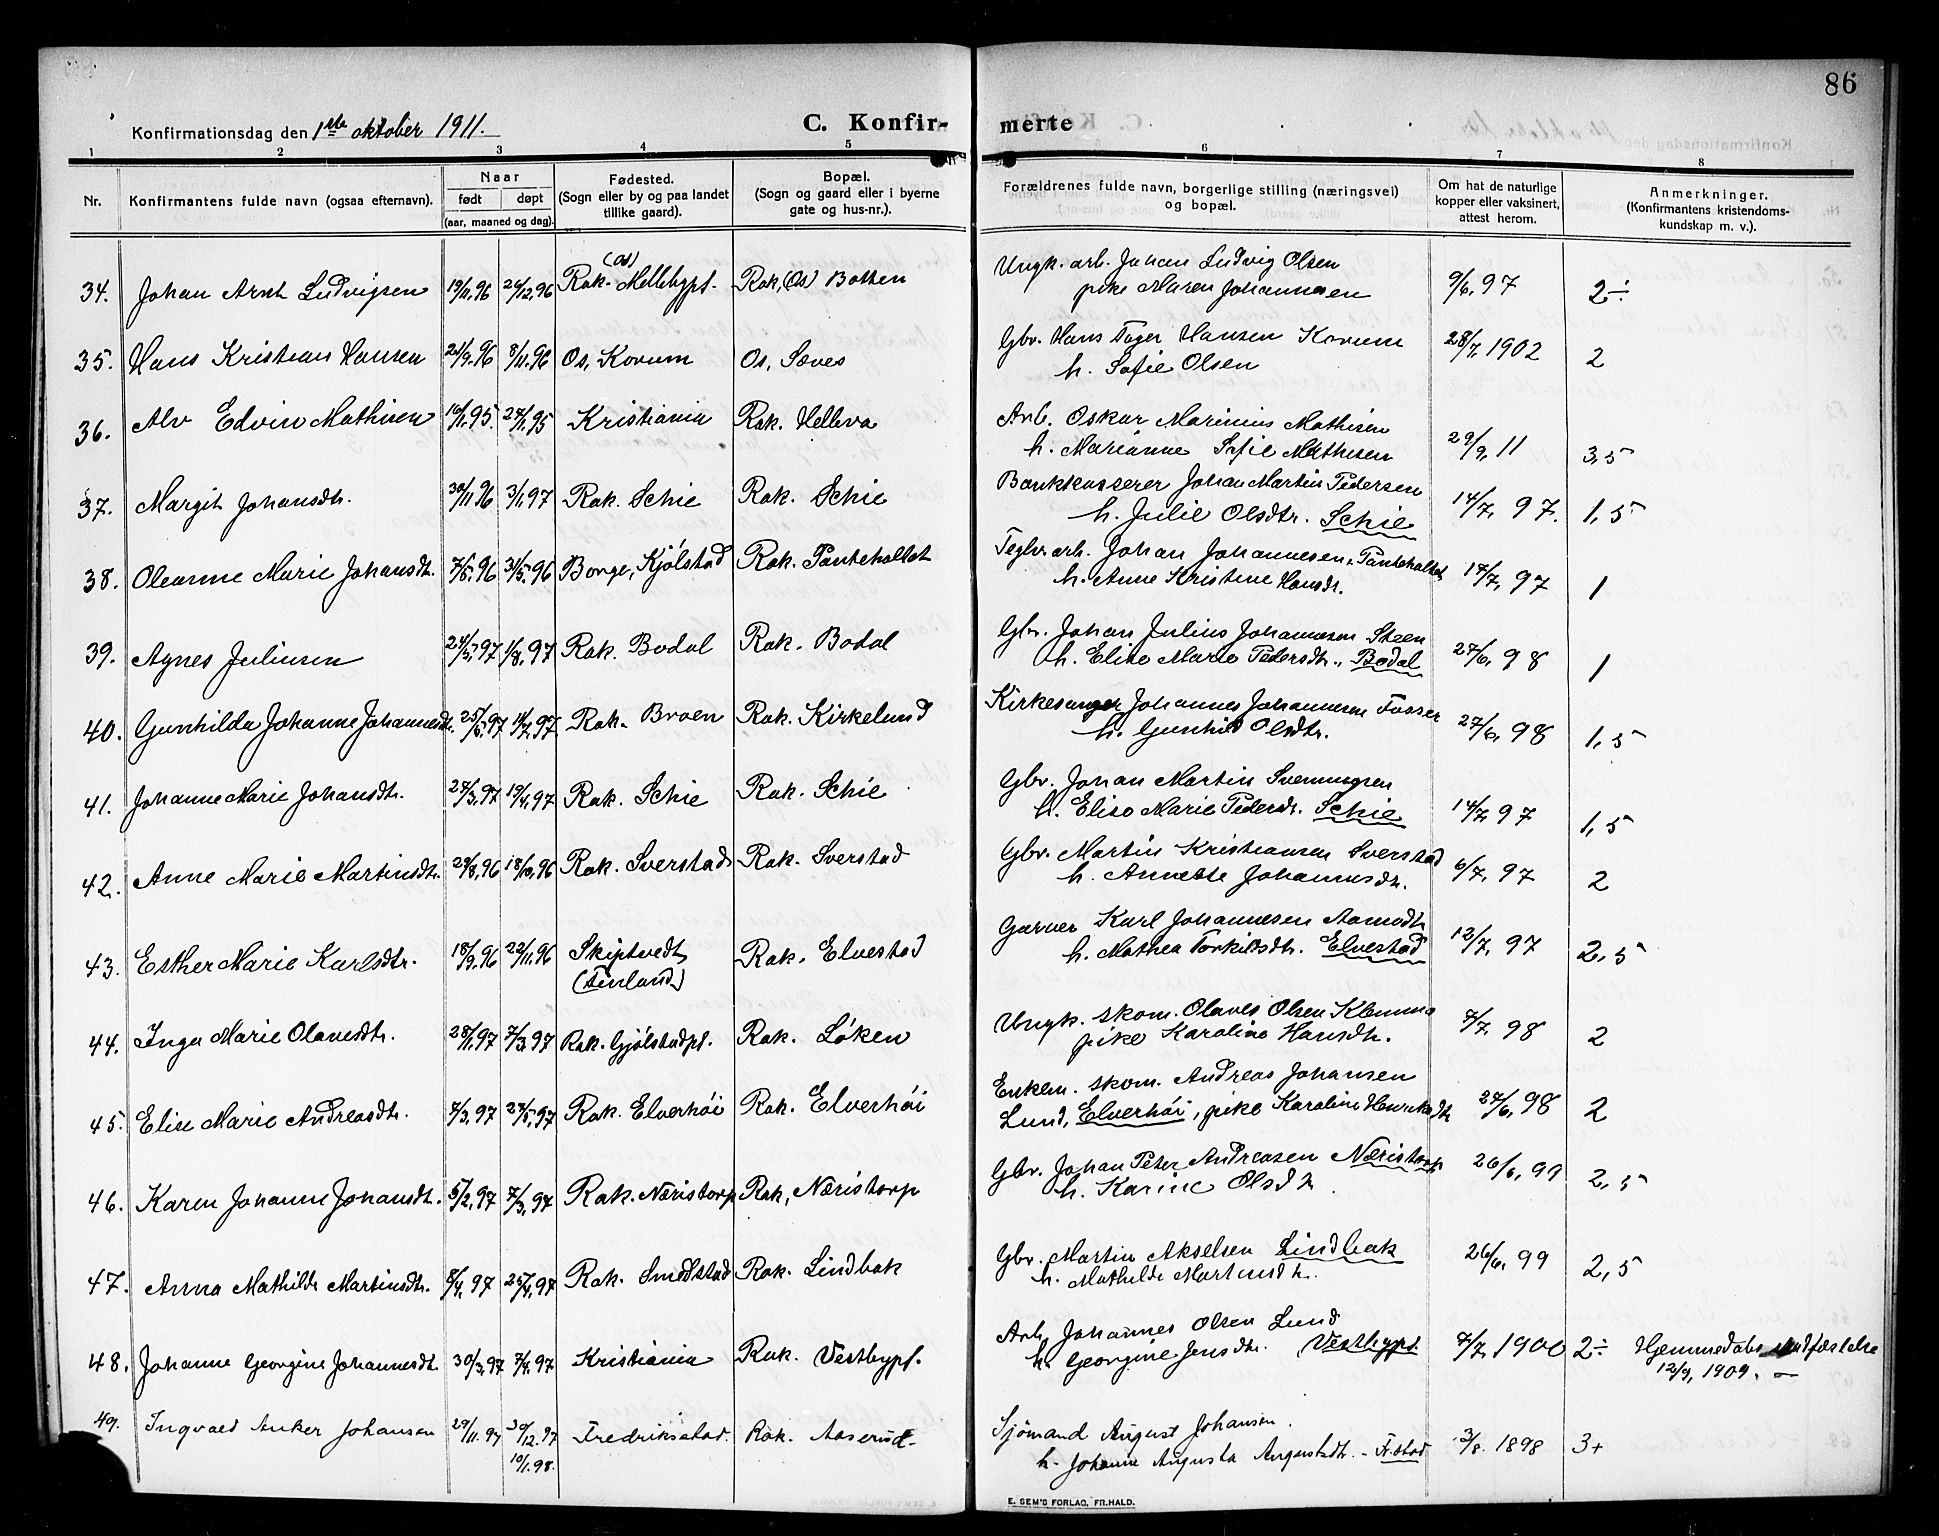 86
Konfirmationsdag den 1ste oktober 1911. C. Konfir- merte
1 2 3 4 5 6 7 8
Nr. Konfirmantens fulde navn (ogsaa efternavn). Naar født døpt (aar, maaned og dag). Fødested. (Sogn eller by og paa landet tillike gaard). Bopæl. (Sogn og gaard eller i byerne gate og hus-nr.). Forældrenes fulde navn, borgerlige stilling (næringsvei) og bopæl. Om hat de naturlige kopper eller vaksinert, attest herom. Anmerkninger. (Konfirmantens kristendomskundskap m. v.).
34. Johan Arnt Ludvigsen 19/11,96 26/12,96 Rak. (Os) Mellebypl. Rak, (Os) Botten Ungk. arb. Johan Ludvig Olsen 9/6,97 2÷
pike Maren Johannesen
35. Hans Kristian Hansen 21/9.96 8/11.96 Os, Korum Os, Sæves Gbr. Hans Hansen Korum 28/7,1902 2
h. Sofie Olsen
36. Alv Edvin Mathisen 16/1,95. 24/1,95 Kristiania Rak. Helleva Arb. Oskar Marinius Mathisen 29/9,11 3,5
h. Marianne Sofie Mathisen
37. Margit Johansdtr. 30/11,96 3/1,97 Rak. Schie Rak. Schie Bankkasserer Johan Martin Pedersen 14/7,97. 1,5
h. Julie Olsdtr. Schie
38. Oleanne Marie Johansdtr. 7/5.96 31/5.96 Borge, Kjölstad Rak. Pantehollet Teglv.arb. Johan Johannesen, Panteholtet 17/7,97 1
h. Anne Kristine Hansdtr.
39. Agnes Juliusen 24/5,97 1/8,97 Rak. Bodal Rak. Bodal Gbr. Johan Julius Johannesen Steen 27/6,98 1
h. Elise Marie Pedersdtr., Bodal
40. Gunhilda Johanne Johannesdtr. 25/6.97 11/7,97 Rak. Braen Rak. Kirkelund Kirkesanger Johannes Johannesen Fosser 27/6,98 1,5
h. Gunhild Olsdtr.
41. Johanne Marie Johansdtr. 27/3,97 19/4,97 Rak. Schie Rak. Schie Gbr. Johan Martin Svenningsen 14/7,97 1,5
h. Elise Marie Pedersdtr. Schie
42. Anne Marie Martinsdtr. 29/8,96 18/10,96 Rak. Sverstad Rak. Sverstad Gbr. Martin Kristiansen Sverstad 6/7,97 2
h. Annette Johannesdtr.
43. Esther Marie Karlsdtr. 18/9.96 22/11.96 Skiptvedt Rak. Elvestad Garver Karl Johannesen Aamodt 12/7,97 2,5
(Finland) h. Mathea Torkildsdtr. Elvestad
44. Inga Marie Olavesdtr. 28/1,97 7/3,97 Rak. Gjölstadpl. Rak. Löken Ungk. skom. Olaves Olsen Klemma 7/7,98 2
pike Karoline Hansdtr.
45. Elise Marie Andreasdtr. 7/3,97 27/5,97 Rak. Elverhöi Rak. Elverhöi Enkem. skom. Andreas Johansen 27/6,98 2
Lund, Elverhöi, pike Karoline Henriksdtr
46. Karen Johanne Johansdtr. 5/2,97 7/3,97 Rak. Næristorp Rak, Næristorp Gbr. Johan Peter Andreasen Næristorp 26/6,99 2,5
h. Karine Olsdtr
47. Anna Mathilde Martinsdtr. 8/4,97 25/4,97 Rak. Smedstad Rak. Lindbak Gbr. Martin Akselsen Lindbak 26/6,99 2,5
h. Mathilde Martinsdtr.
48. Johanne Georgine Johannesdtr. 30/3,97 7/4.97 Kristiania Rak. Vestbypl. Arb. Johannes Olsen Lund 7/7,1900 2÷ Hjemmedøbt stadfæstelse
h. Georgine Jensdtr. Vestbypl. 12/9,1909.
49. Ingvald Anker Johansen 29/11.97 30/12.97 Fredriksstad. Rak. Aaserud. Sjömand August Johansen. 3/8.1898 3+
10/1.98. h. Johanne Augusta Augustsdtr. - Fr.stad
E. SEM'S FORLAG, FR.HALD.